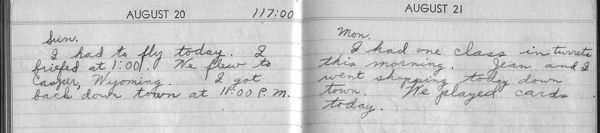 AUGUST 20 117:00
Sun.
I had to fly today. I
briefed at 1:00. We flew to
Casper, Wyoming. I got
back down town at 11:00 P.M.
AUGUST 21
Mon.
I had one class in turrets
this morning. Jean and I
went shopping today down
town. We played cards
today.